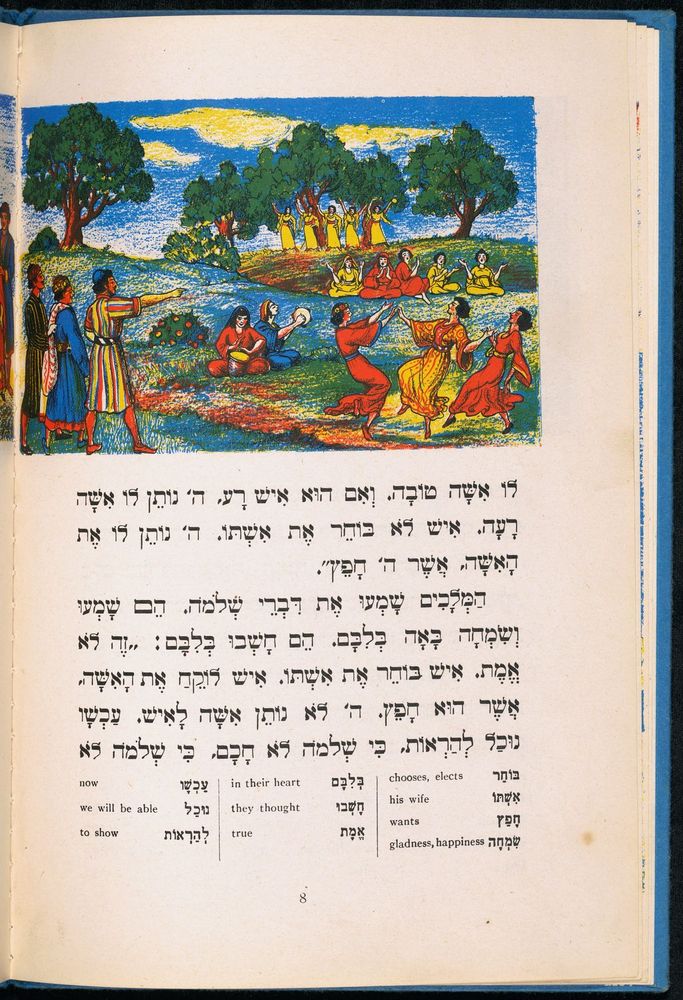 לוֹ אִשָּׁה טוֹבָה. וְאִם הוּא אִישׁ רַע, ה׳ נוֹתֵן לוֹ אִשָּׁה
רָעָה. אִישׁ לֹא בּוֹחֵר אֶת אִשְׁתּוֹ. ה׳ נוֹתֵן לוֹ אֶת
הָאִשָּׁה, אֲשֶׁר ה׳ חָפֵץ״.
הַמְּלָכִים שָׁמְעוּ אֶת דִּבְרֵי שְׁלֹמֹה. הֵם שָׁמְעוּ
וְשִׂמְחָה בָּאָה בְּלִבָּם. הֵם חָשְׁבוּ בְּלִבָּם: „זֶה לֹא
אֱמֶת. אִישׁ בּוֹחֵר אֶת אִשְׁתּוֹ. אִישׁ לוֹקֵחַ אֶת הָאִשָּׁה,
אֲשֶׁר הוּא חָפֵץ. ה׳ לֹא נוֹתֵן אִשָּׁה לָאִישׁ. עַכְשָׁו
נוּכַל לְהַרְאוֹת, כִּי שְׁלֹמֹה לֹא חָכָם, כִּי שְׁלֹמֹה לֹא
chooses, elects בּוֹחֵר
his wife אִשְׁתּוֹ
wants חָפֵץ
gladness, happiness שִׂמְחָה
in their heart בְּלִבָּם
they thought חָשְׁבוּ
true אֱמֶת
now עַכְשָׁו
we will be able נוּכַל
to show לְהַרְאוֹת
8